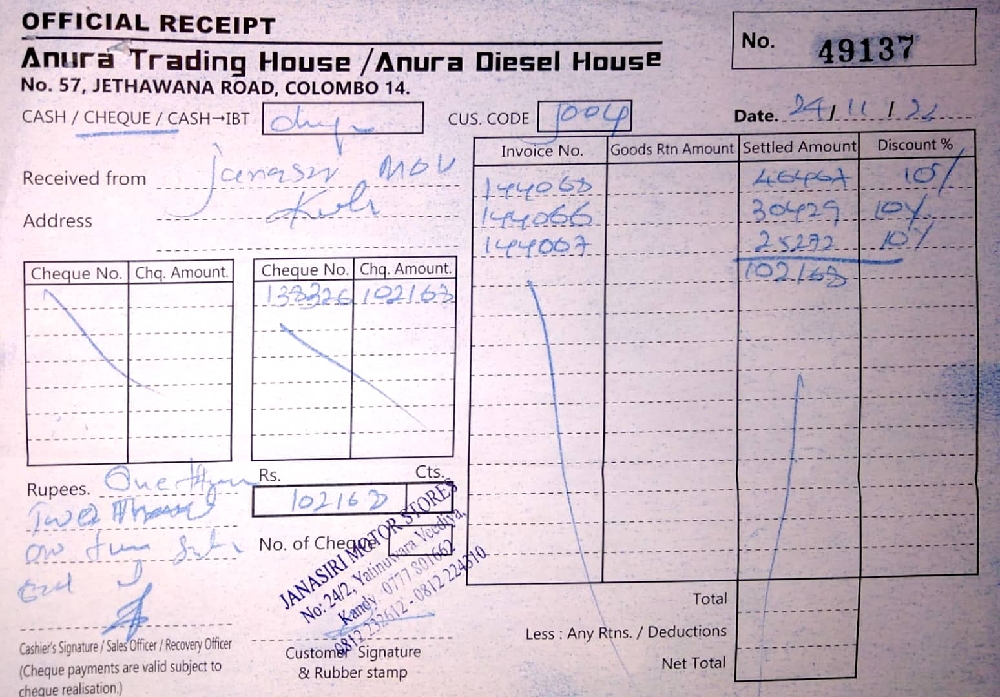 OFFICIAL RECEIPT
Anura Trading House / Anura Diesel House
No. 57, JETHAWANA ROAD, COLOMBO 14.
No. 49137
CASH / CHEQUE / CASH→IBT
CUS. CODE J004
Date. 24 / 11 /
Received from Janasiri
Address
Invoice No. Goods Rtn Amount Settled Amount Discount %
144068 46467 10%
144066 30429 10%
144067 25272 10%
102168
Cheque No. Chq. Amount. Cheque No. Chq. Amount.
138326 102168
Rupees. One
Rs. Cts.
102168
No. of Cheques
JANASIRI MOTOR STORES
No: 24/2, Yatinuwara Veediya,
Kandy 0777 801662
0812 232612 - 0812 224310
Cashier's Signature / Sales Officer / Recovery Officer
(Cheque payments are valid subject to
cheque realisation.)
Customer Signature
& Rubber stamp
Total
Less : Any Rtns. / Deductions
Net Total